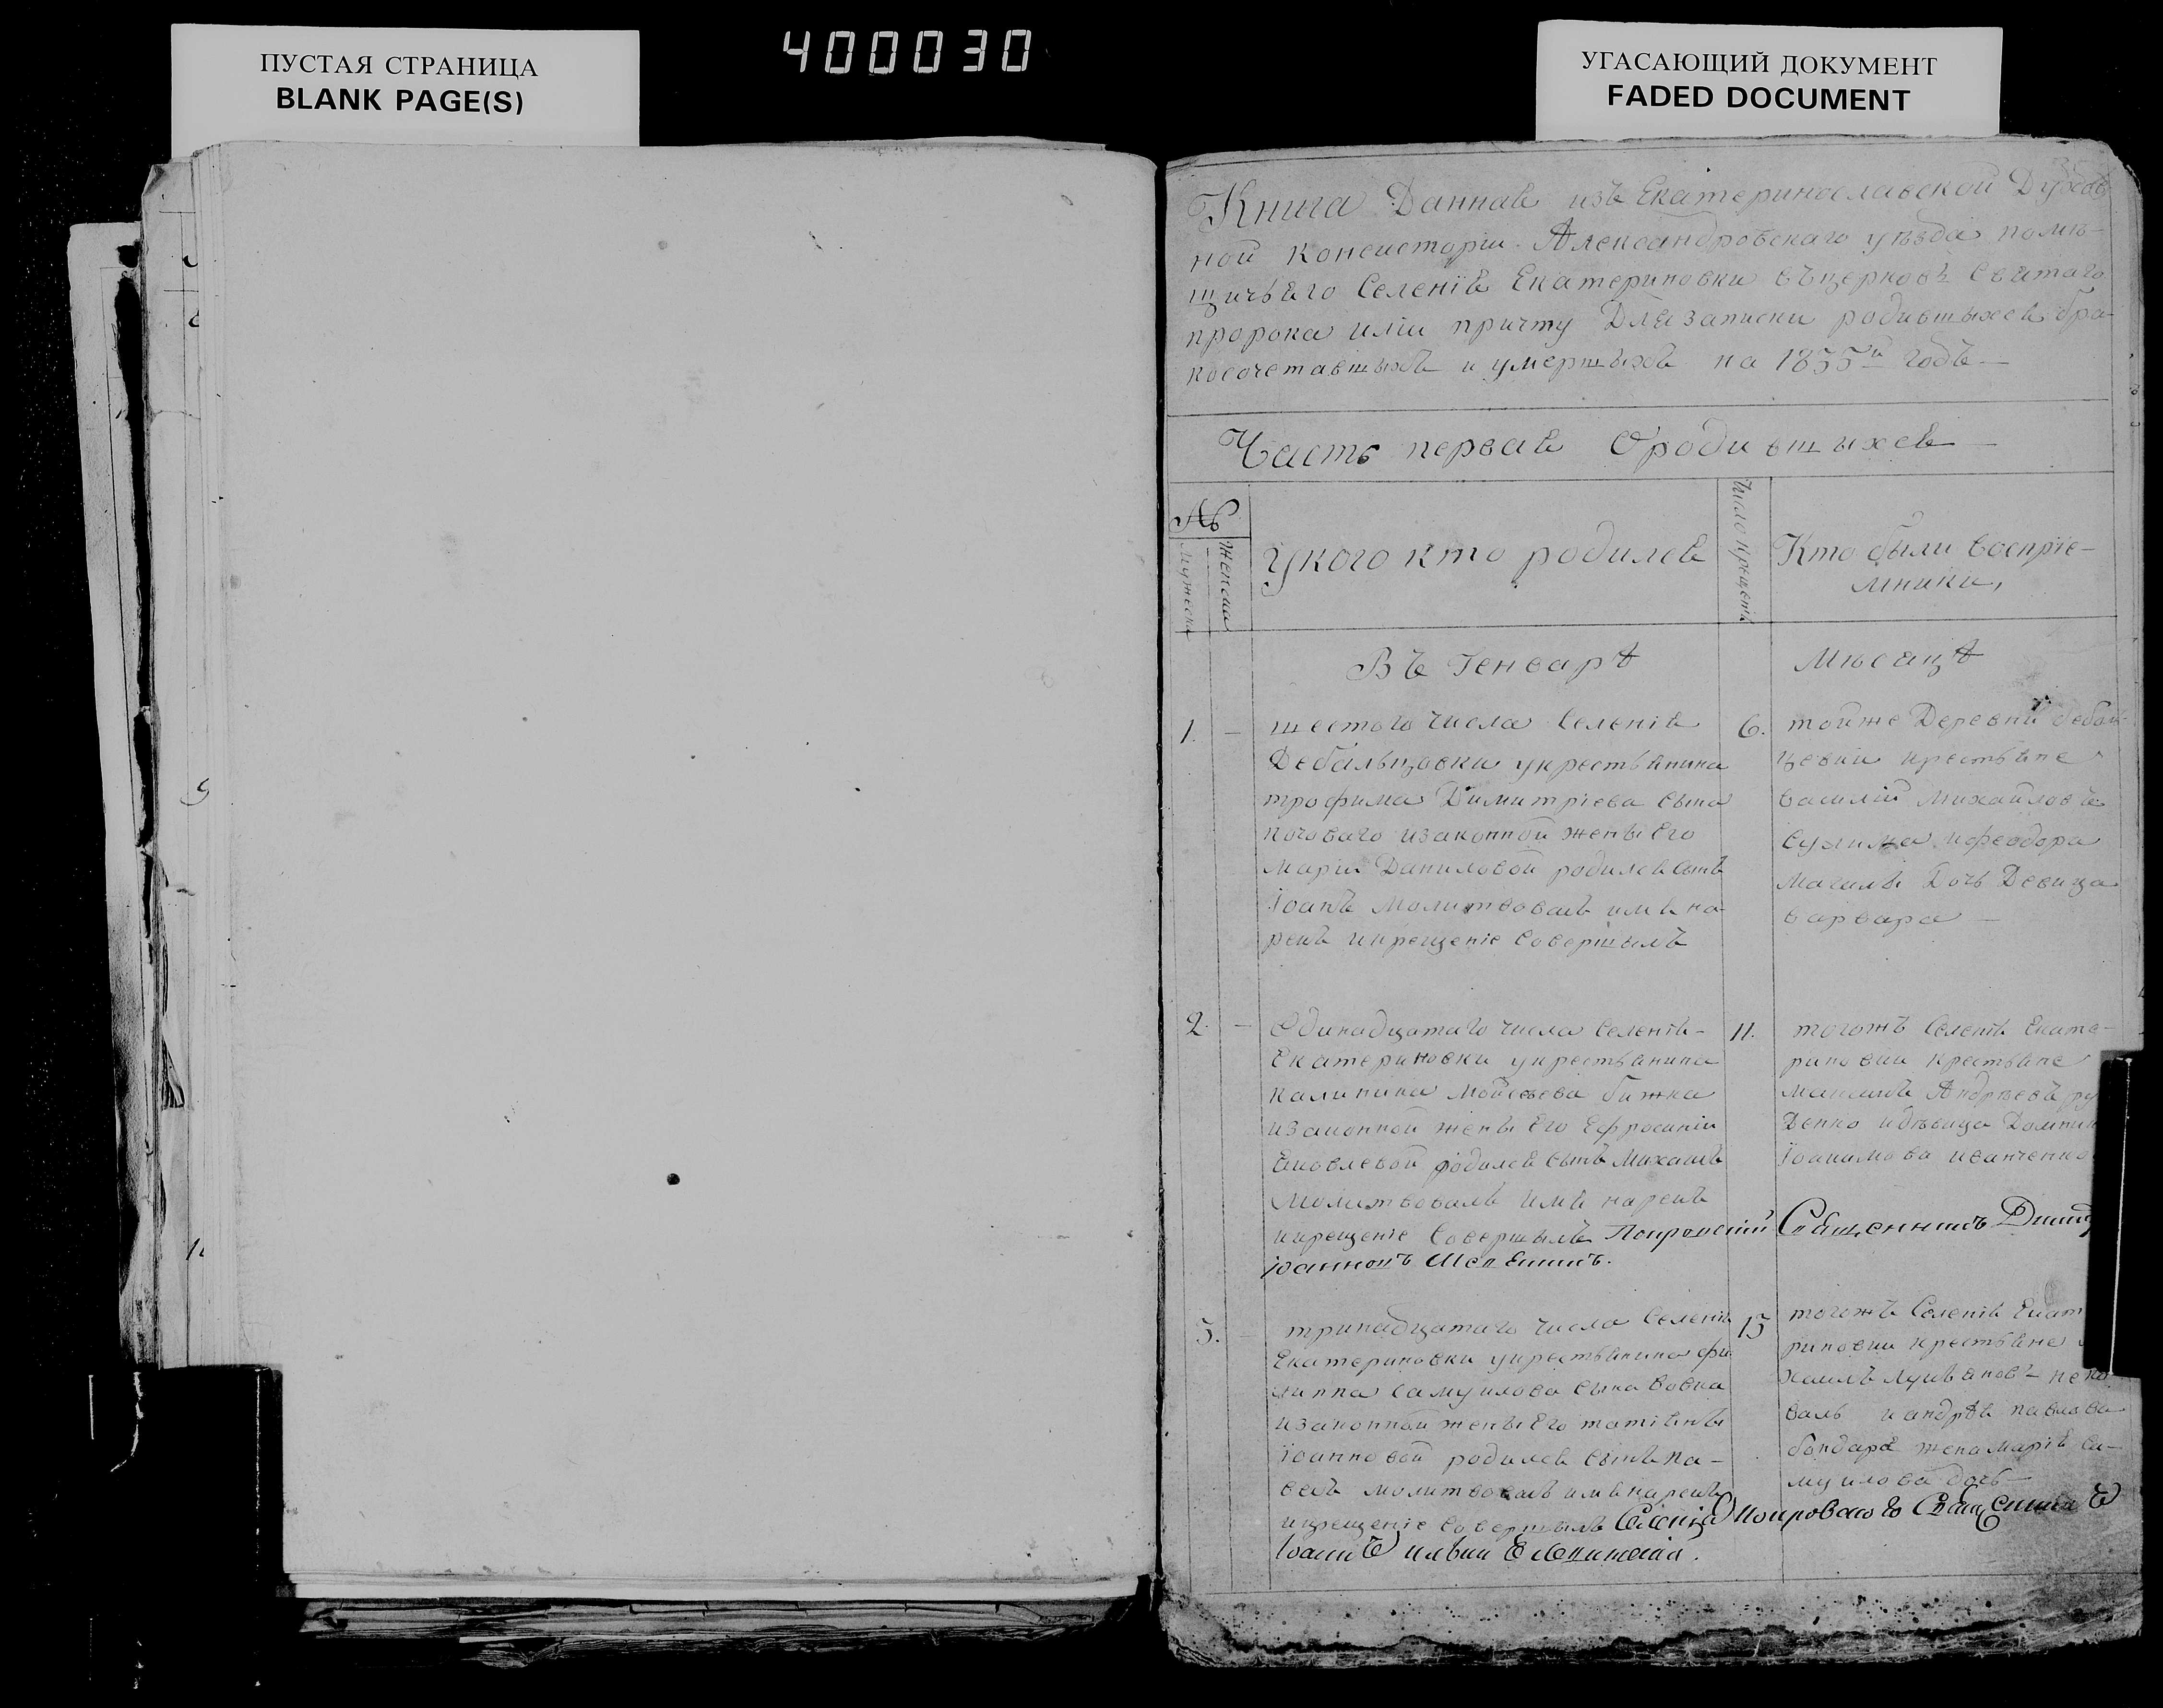 ПУСТАЯ СТРАНИЦА
BLANK PAGE(S)
400030
УГАСАЮЩИЙ ДОКУМЕНТ
FADED DOCUMENT
Книга Данная изъ Екатеринославской Духов
ной консисторіи Александровскаго уѣзда помѣ-
щичьяго Селенія Екатериновки въ церковь Святаго
пророка иліи причту Для записки родившыхся бра-
косочетавшыхъ и умершыхъ на 1835й годъ —
Часть первая О родившыхся —
№
Мужеска
Женска
У кого кто родился
Число крещенія
Кто были воспріе-
мники,
Въ Генварѣ
Мѣсяцѣ
1. —
шестого числа Селенія
Дебальцовки у крестьянина
трофима Димитріева сына
изаконной жены Его
Маріи Даниловой родился сынъ
Іоанъ Молитвовалъ имя на-
рекъ и крещеніе совершылъ
6.
тойже Деревни Дебаль
цовки крестьяне
василій Михайловъ
и феодора
Дочь Девица
варвара —
2. —
Одинадцатаго числа Селенія —
Екатериновки у крестьянина
калиника Мойсѣева бижка
изаконной жены Его Ефросиніи
Яковлевой родился сынъ Михаилъ
Молитвовалъ имя нарекъ
и крещеніе Совершылъ Покровскій Священникъ
11.
тогожъ Селенія Екате-
риновки крестьяне
Максимъ Андрѣевъ
Денко и дѣвица
иванченко
3. —
тринадцатаго числа Селенія
Екатериновки у крестьянина фи
липпа Самуилова сына вовка
изаконной жены Его татіяны
Іоанновой родился сынъ па-
велъ молитвовалъ имя нарекъ
и крещеніе совершылъ
13
тогожъ Селенія Екат
риновки крестьяне
хаилъ
валь и андрѣя павлова
бондаря жена Марія Са-
муилова дочь —